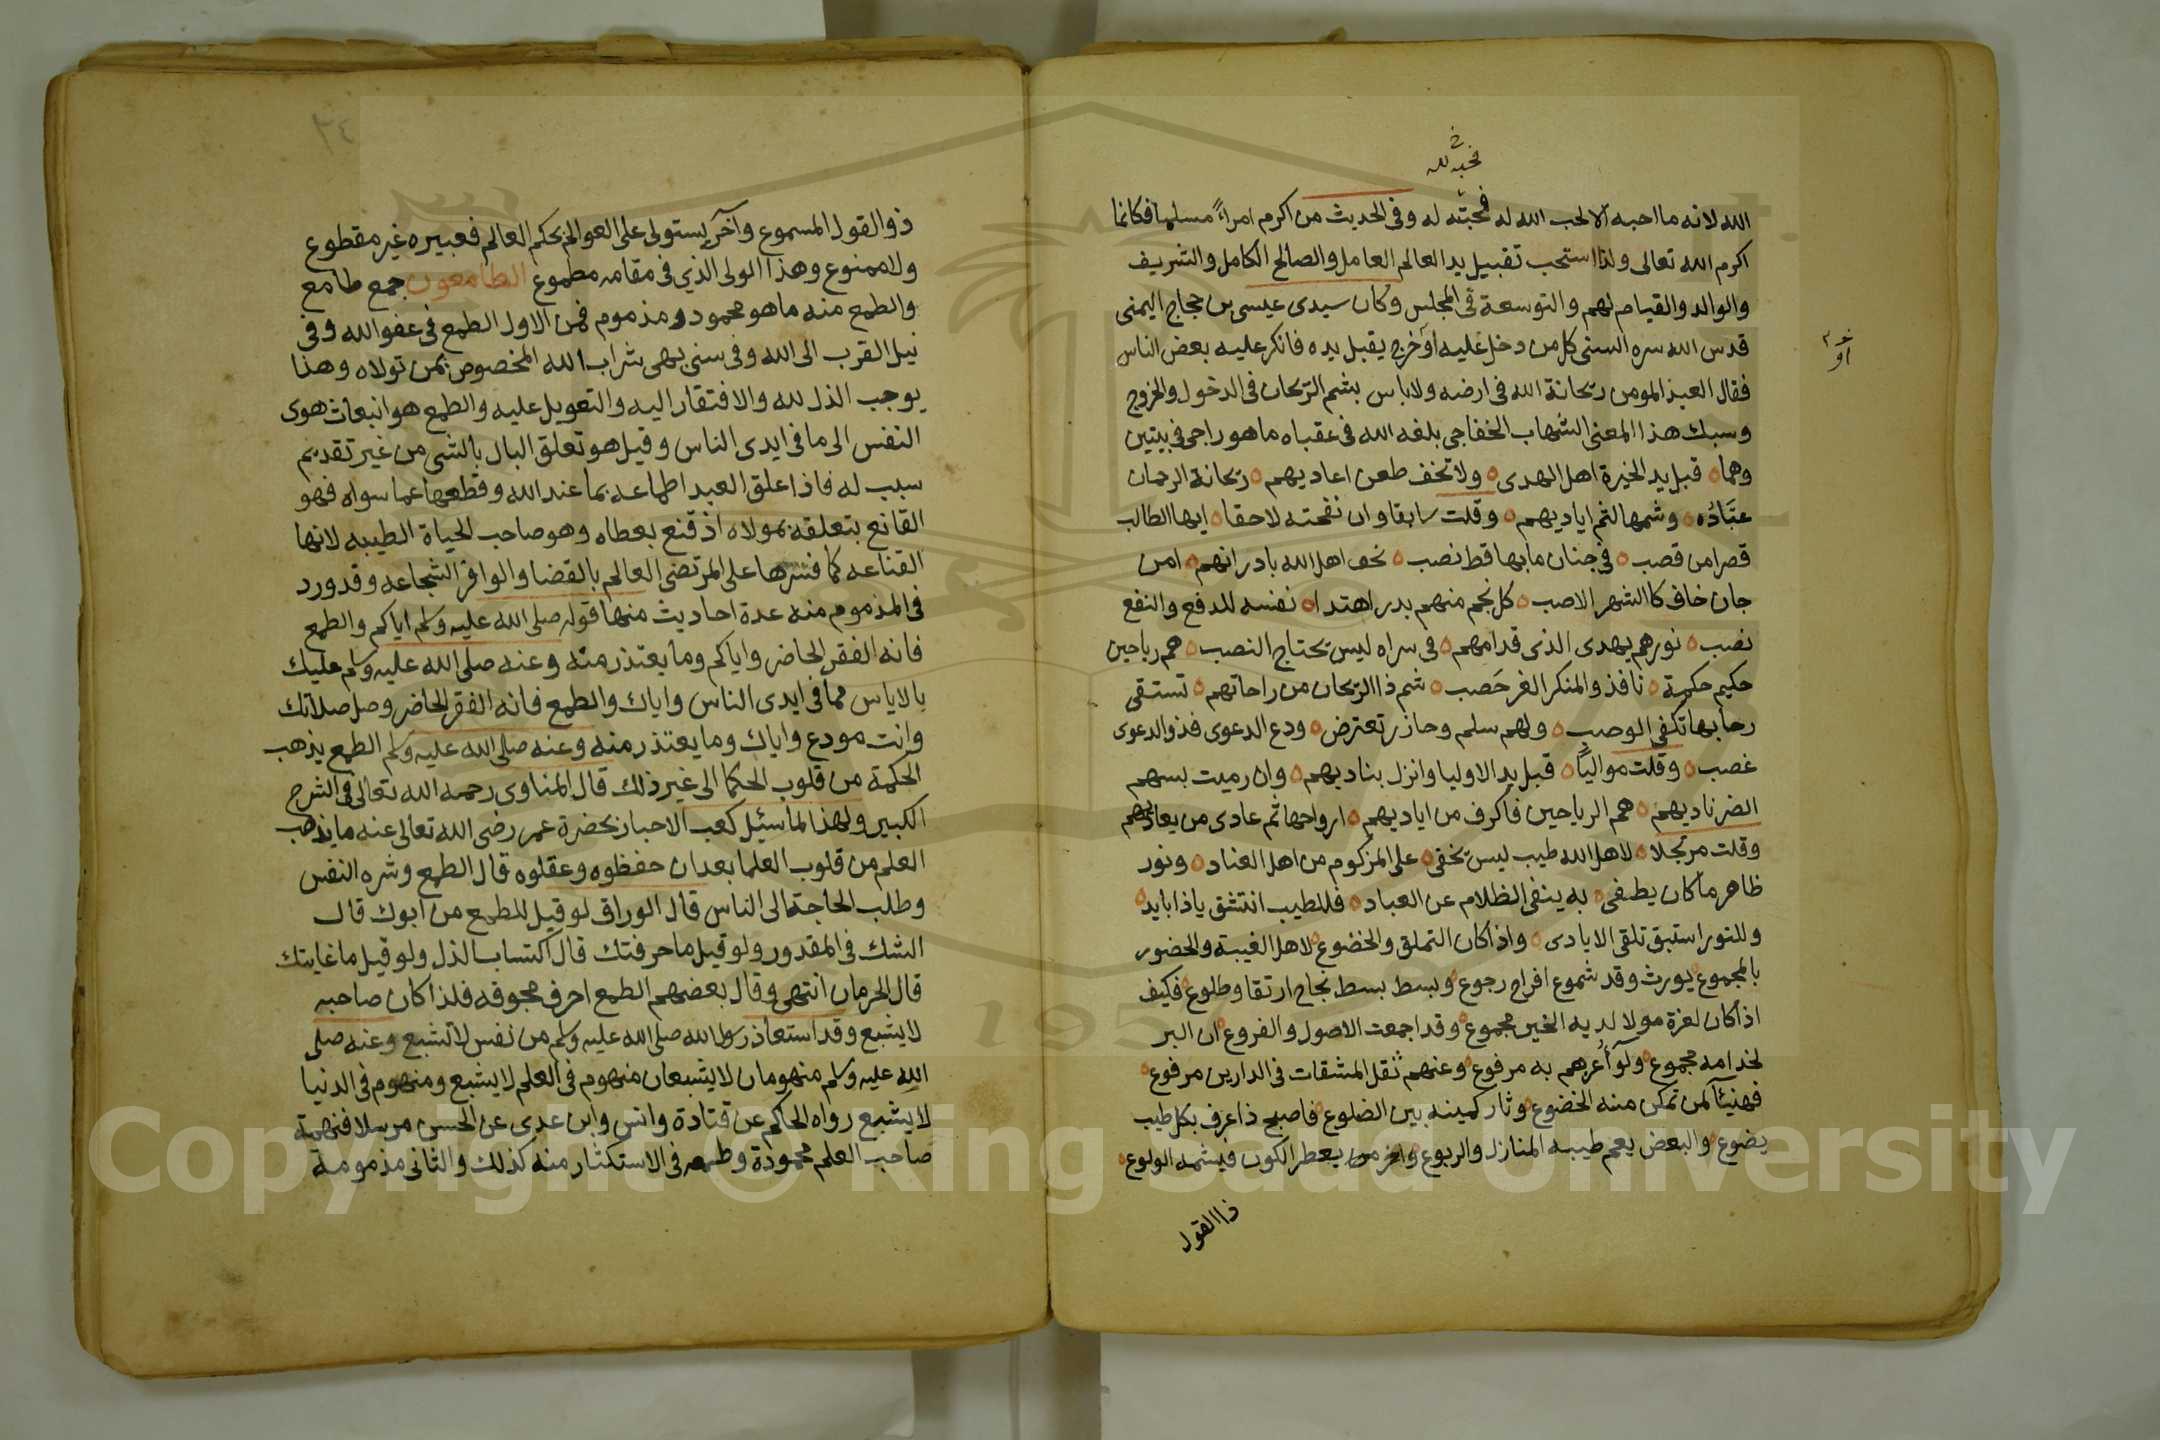 فمحبه لله
الله لانه ما احبه الا لحب الله له فمحبته له وفى الحديث من اكرم امراءً مسلما فكانما
اكرم الله تعالى ولذا استحب تقبيل يد العالم العامل والصالح الكامل والشريف
والوالد والقيام لهم والتوسعة فى المجلس وكان سيدى عيسى بن حجاج اليمنى
قدس الله سره السنى كل من دخل عليه او خرج يقبل يده فانكر عليه بعض الناس
او
فقال العبد المومن ريحانة الله فى ارضه ولاباس بشم الريحان فى الدخول والخروج
وسبك هذا المعنى الشهاب الخفاجى بلغه الله فى عقباه ما هو راجى فى بيتين
وهما قبل يد الخيرة اهل الهدى ولا تخف طعن اعاديهم ريحانة الرحمان
عبّادُه وشمها لثم اياديهم وقلت سابقا وان نفحته لاحقا ايها الطالب
قصرا من قصب فى جنان ما بها قط نصب نحو اهل الله بادر انهم امن
جان خاف كالشهر الاصب كل نجم منهم بدر اهتدا نفسه للدفع والنفع
نصب نورهم يهدى الذى قدامهم فى سراه ليس يحتاج النصب هم رياحين
حكيم حكمة نافذ والمنكر الغر حَصب شم ذا الريحان من راحاتهم تستقى
رحا بها تكفى الوصب ولهم سلم وحاذر تعترض ودع الدعوى فذو الدعوى
غصب وقلت مواليًا قبل يد الاوليا وانزل بناديهم وان رميت بسهم
الضر ناديهم هم الرياحين فاكرف من اياديهم ارواحها ثم عادى من يعاديهم
وقلت مرتجلا لاهل الله طيب ليس يخفى على المزكوم من اهل العناد ونور
ظاهر ما كان يطفى به ينفى الظلام عن العباد فللطيب انتشق ياذا ابايد
وللنور استبق تلقى الايادى واذا كان التملق والخضوع لاهل الغيبة والحضور
بالمجموع يورث وقد شموع افراح رجوع وبسط بسط نجاح ارتقا وطلوع فكيف
اذا كان لعزة مولا لديه الخير مجموع وقد اجمعت الاصول والفروع ان البر
لخدامه مجموع ولوآ عزهم به مرفوع وعنهم ثقل المشقات فى الدارين مرفوع
فهنيئا لمن تمكن منه الخضوع وثار كمينه بين الضلوع فاصبح ذا عرف بكل طيب
يضوع والبعض يعم طيبه المنازل والربوع واخر يعطر الكون فيشمه الولوع
ذا القول
٢٤
ذو القول المسموع وآخر يستولى على العوالم بحكم العالم فعبيره غير مقطوع
ولاممنوع وهذا الولى الذي فى مقامه مطموع الطامعون جمع طامع
والطمع منه ما هو محمود ومذموم فمن الاول الطمع فى عفو الله وفى
نيل القرب الى الله وفى سنى بهى شراب الله المخصوص بمن تولاه وهذا
يوجب الذل لله والافتقار اليه والتعويل عليه والطمع هو انبعاث هوى
النفس الى ما فى ايدى الناس وقيل هو تعلق البال بالشى من غير تقديم
سبب له فاذا علق العبد اطماعه بما عند الله وقطعها عما سواه فهو
القانع بتعلقه بمولاه اذ قنع بعطاه وهو صاحب الحياة الطيبه لانها
القناعه كما فسرها على المرتضى العالم بالقضا والوافر الشجاعه وقد ورد
فى المذموم منه عدة احاديث منها قوله صلى الله عليه وسلم اياكم والطمع
فانه الفقر الحاضر واياكم وما يعتذر منه وعنه صلى الله عليه وسلم عليك
بالاياس مما فى ايدى الناس واياك والطمع فانه الفقر الحاضر وصل صلاتك
وانت مودع واياك وما يعتذر منه وعنه صلى الله عليه وسلم الطمع يذهب
الحكمة من قلوب الحكما الى غير ذلك قال المناوى رحمه الله تعالى فى الشرح
الكبير ولهذا لما سئل كعب الاحبار بحضرة عمر رضى الله تعالى عنه ما يذهب
العلم من قلوب العلما بعد ان حفظوه وعقلوه قال الطمع وشره النفس
وطلب الحاجة الى الناس قال الوراق لو قيل للطمع من ابوك قال
الشك فى المقدور ولو قيل ما حرفتك قال اكتساب الذل ولو قيل ما غايتك
قال الحرمان انتهى وقال بعضهم الطمع احرف مجوفه فلذا كان صاحبه
لايشبع وقد استعاذ رسول الله صلى الله عليه وسلم من نفس لا تشبع وعنه صلى
الله عليه وسلم منهومان لا يشبعان منهوم فى العلم لا يشبع ومنهوم فى الدنيا
لا يشبع رواه الحاكم عن قتادة وانس وابن عدى عن الحسن مرسلا فنهمة
صاحب العلم محمودة وطمعه فى الاستكثار منه كذلك والثانى مذمومة
Copyright © King Saud University
195